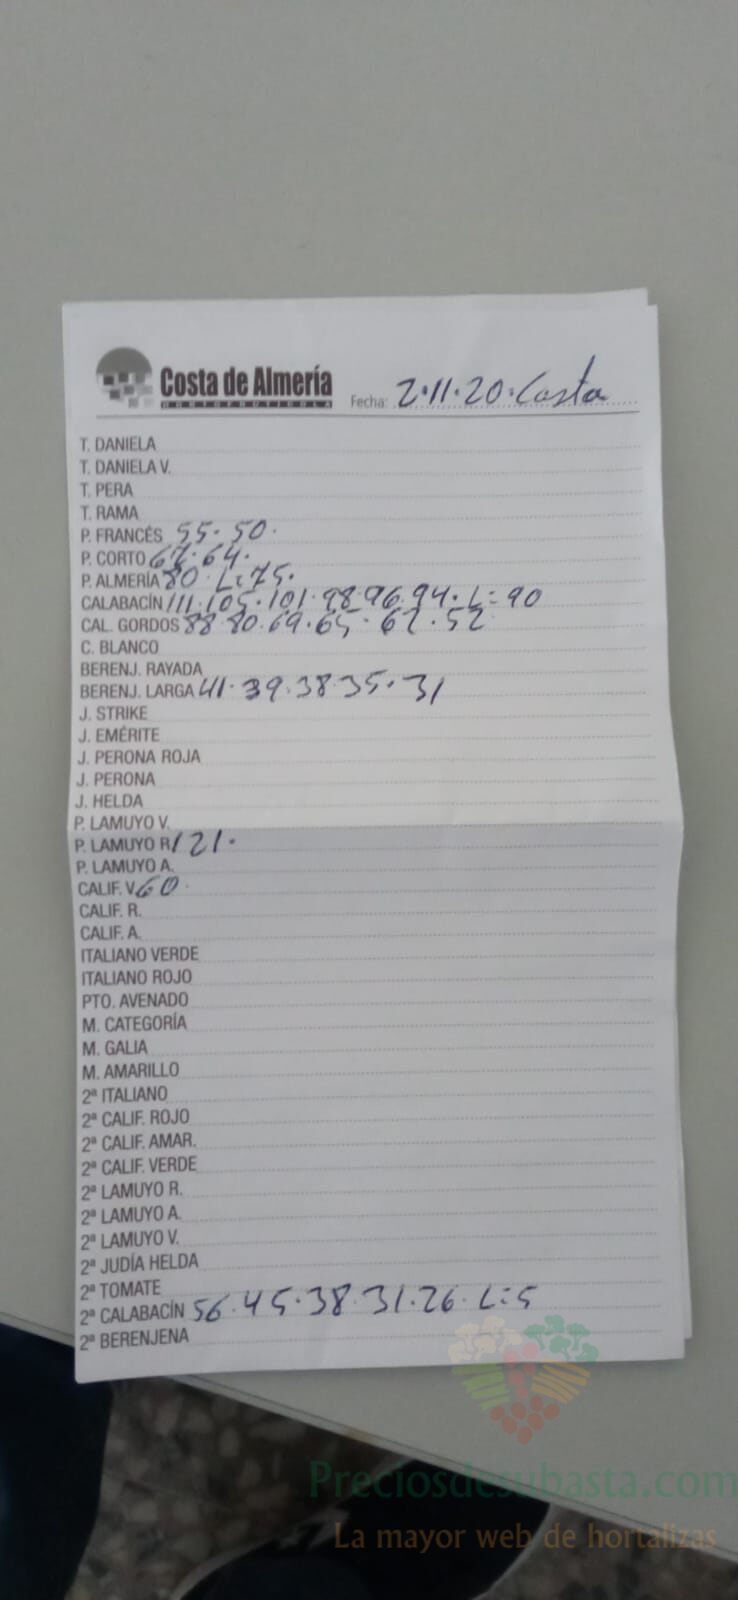 Costa de Almería
HORTOFRUTICOLA
Fecha: 2·11·20·Costa
T. DANIELA
T. DANIELA V.
T. PERA
T. RAMA
P. FRANCÉS 55·50·
P. CORTO 67·64·
P. ALMERÍA 80·L:75·
CALABACÍN 111·105·101·98·96·94·L:90
CAL. GORDOS 88·80·69·65·62·52
C. BLANCO
BERENJ. RAYADA
BERENJ. LARGA 41·39·38·35·31
J. STRIKE
J. EMÉRITE
J. PERONA ROJA
J. PERONA
J. HELDA
P. LAMUYO V.
P. LAMUYO R 121·
P. LAMUYO A.
CALIF. V. 60·
CALIF. R.
CALIF. A.
ITALIANO VERDE
ITALIANO ROJO
PTO. AVENADO
M. CATEGORÍA
M. GALIA
M. AMARILLO
2ª ITALIANO
2ª CALIF. ROJO
2ª CALIF. AMAR.
2ª CALIF. VERDE
2ª LAMUYO R.
2ª LAMUYO A.
2ª LAMUYO V.
2ª JUDÍA HELDA
2ª TOMATE
2ª CALABACÍN 56·45·38·31·26·L:5
2ª BERENJENA
Preciosdesubasta.com
La mayor web de hortalizas